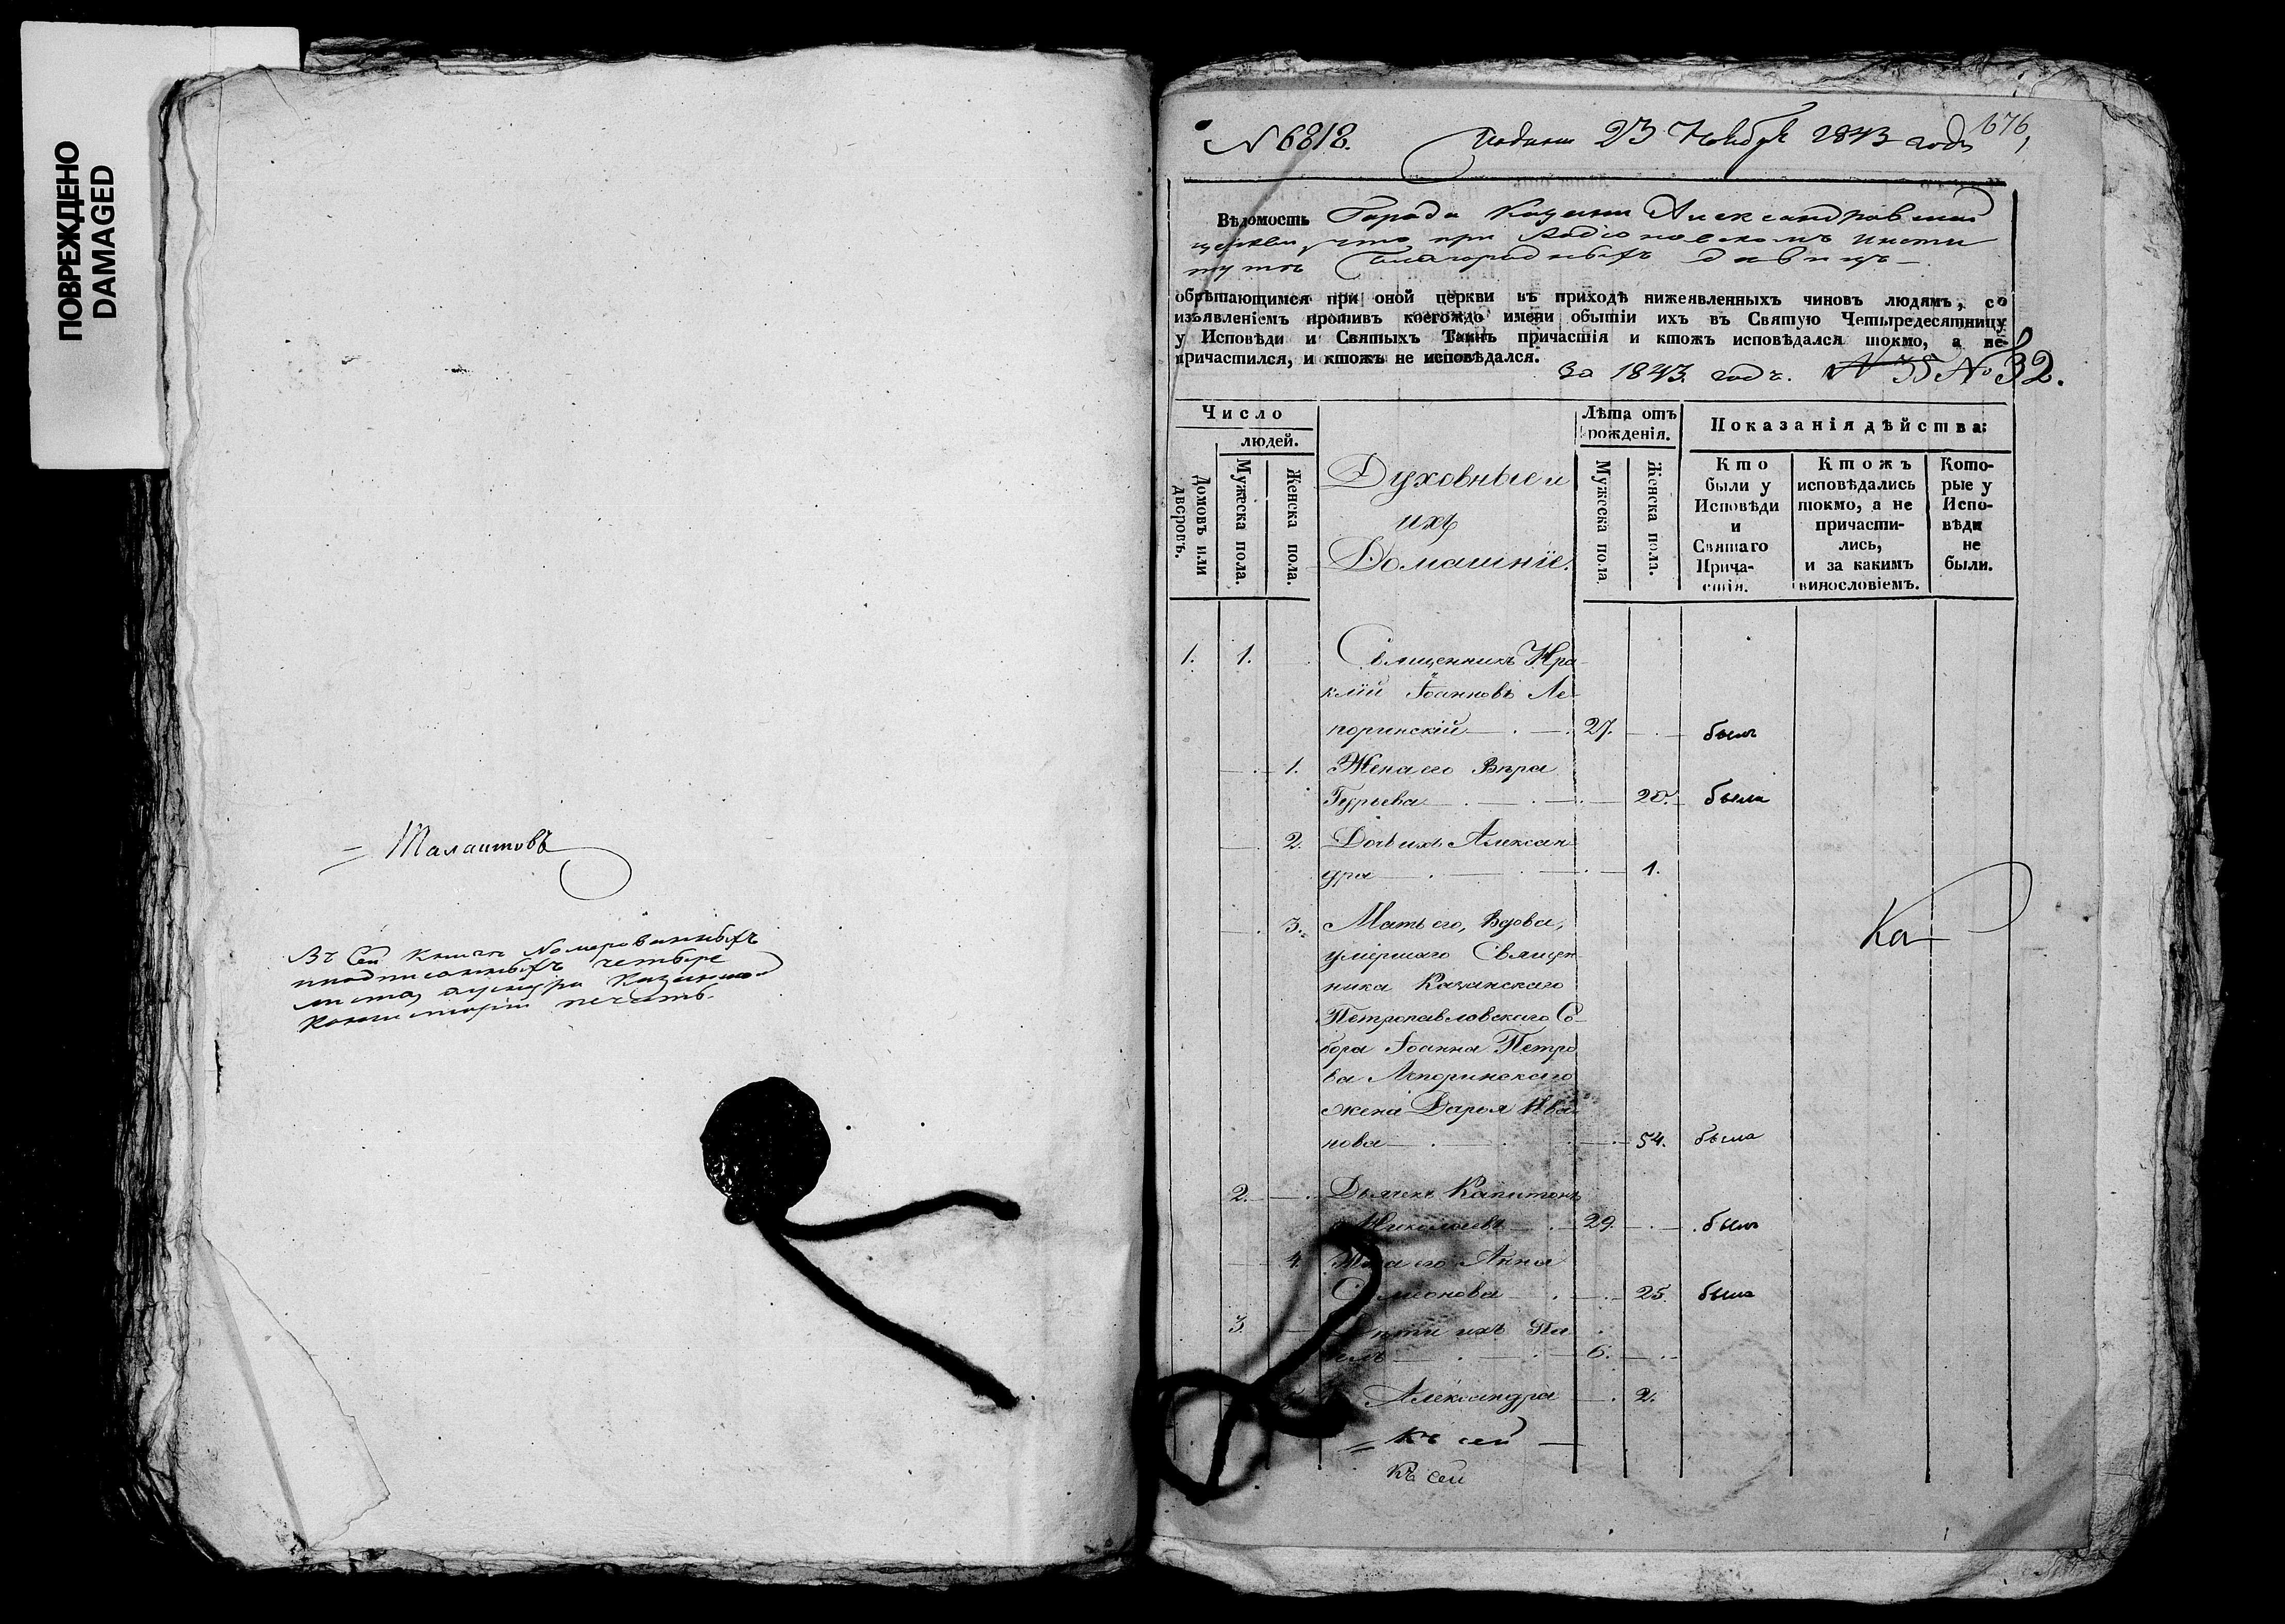 ПОВРЕЖДЕНО
DAMAGED
Талантовъ
Въ сей книгѣ номерованныхъ
и подписанныхъ четыре
листа, а у шнура Казанской
Консисторіи печать.
N 6818. Подана 23 Ноября 1843 года 676,
Вѣдомость Города Казани Александровской
церкви, что при Родіоновскомъ инсти
тутѣ благородныхъ дѣвицъ
обрѣтающимся при оной церкви въ приходѣ нижеявленныхъ чиновъ людямъ, со
изъявленіемъ противъ коегождо имени обытіи ихъ въ Святую Четыредесятницу
у Исповѣди и Святыхъ Таинъ причастія и ктожъ исповѣдался токмо, а не-
причастился, и ктожъ не исповѣдался.
за 1843 годъ. N 35 N 32.
Число
людей.
Домовъ или дворовъ.
Мужеска пола.
Женска пола.
Духовные и
ихъ
Домашніе.
Лѣта отъ
рожденія.
Мужеска пола
Женска пола.
Показанія дѣйства:
Кто
были у
Исповѣди
и
Святаго
Прича-
стія.
Ктожъ
исповѣдались
токмо, а не
причасти-
лись,
и за какимъ
винословіемъ.
Кото-
рые у
Испо-
вѣди
не
были.
1. 1. Священникъ Ира-
клій Іоанновъ Ле-
поринскій 27. былъ
1. Жена его Вѣра
Гурьева 20. была
2. Дочь ихъ Алексан
дра 1.
3. Мать его, вдова,
умершаго Священ
ника Казанскаго
Петропавловскаго Со-
бора Іоанна Петро
ва Лепоринскаго
жена Дарья Ива
нова 54. была
Ка
2. Дьячекъ Капитонъ
Николаевъ 29. былъ
4. Жена его Анна
Симеонова 25. была
3. Дѣти ихъ Па
велъ 6.
Александра 2.
Къ сей
Къ сей